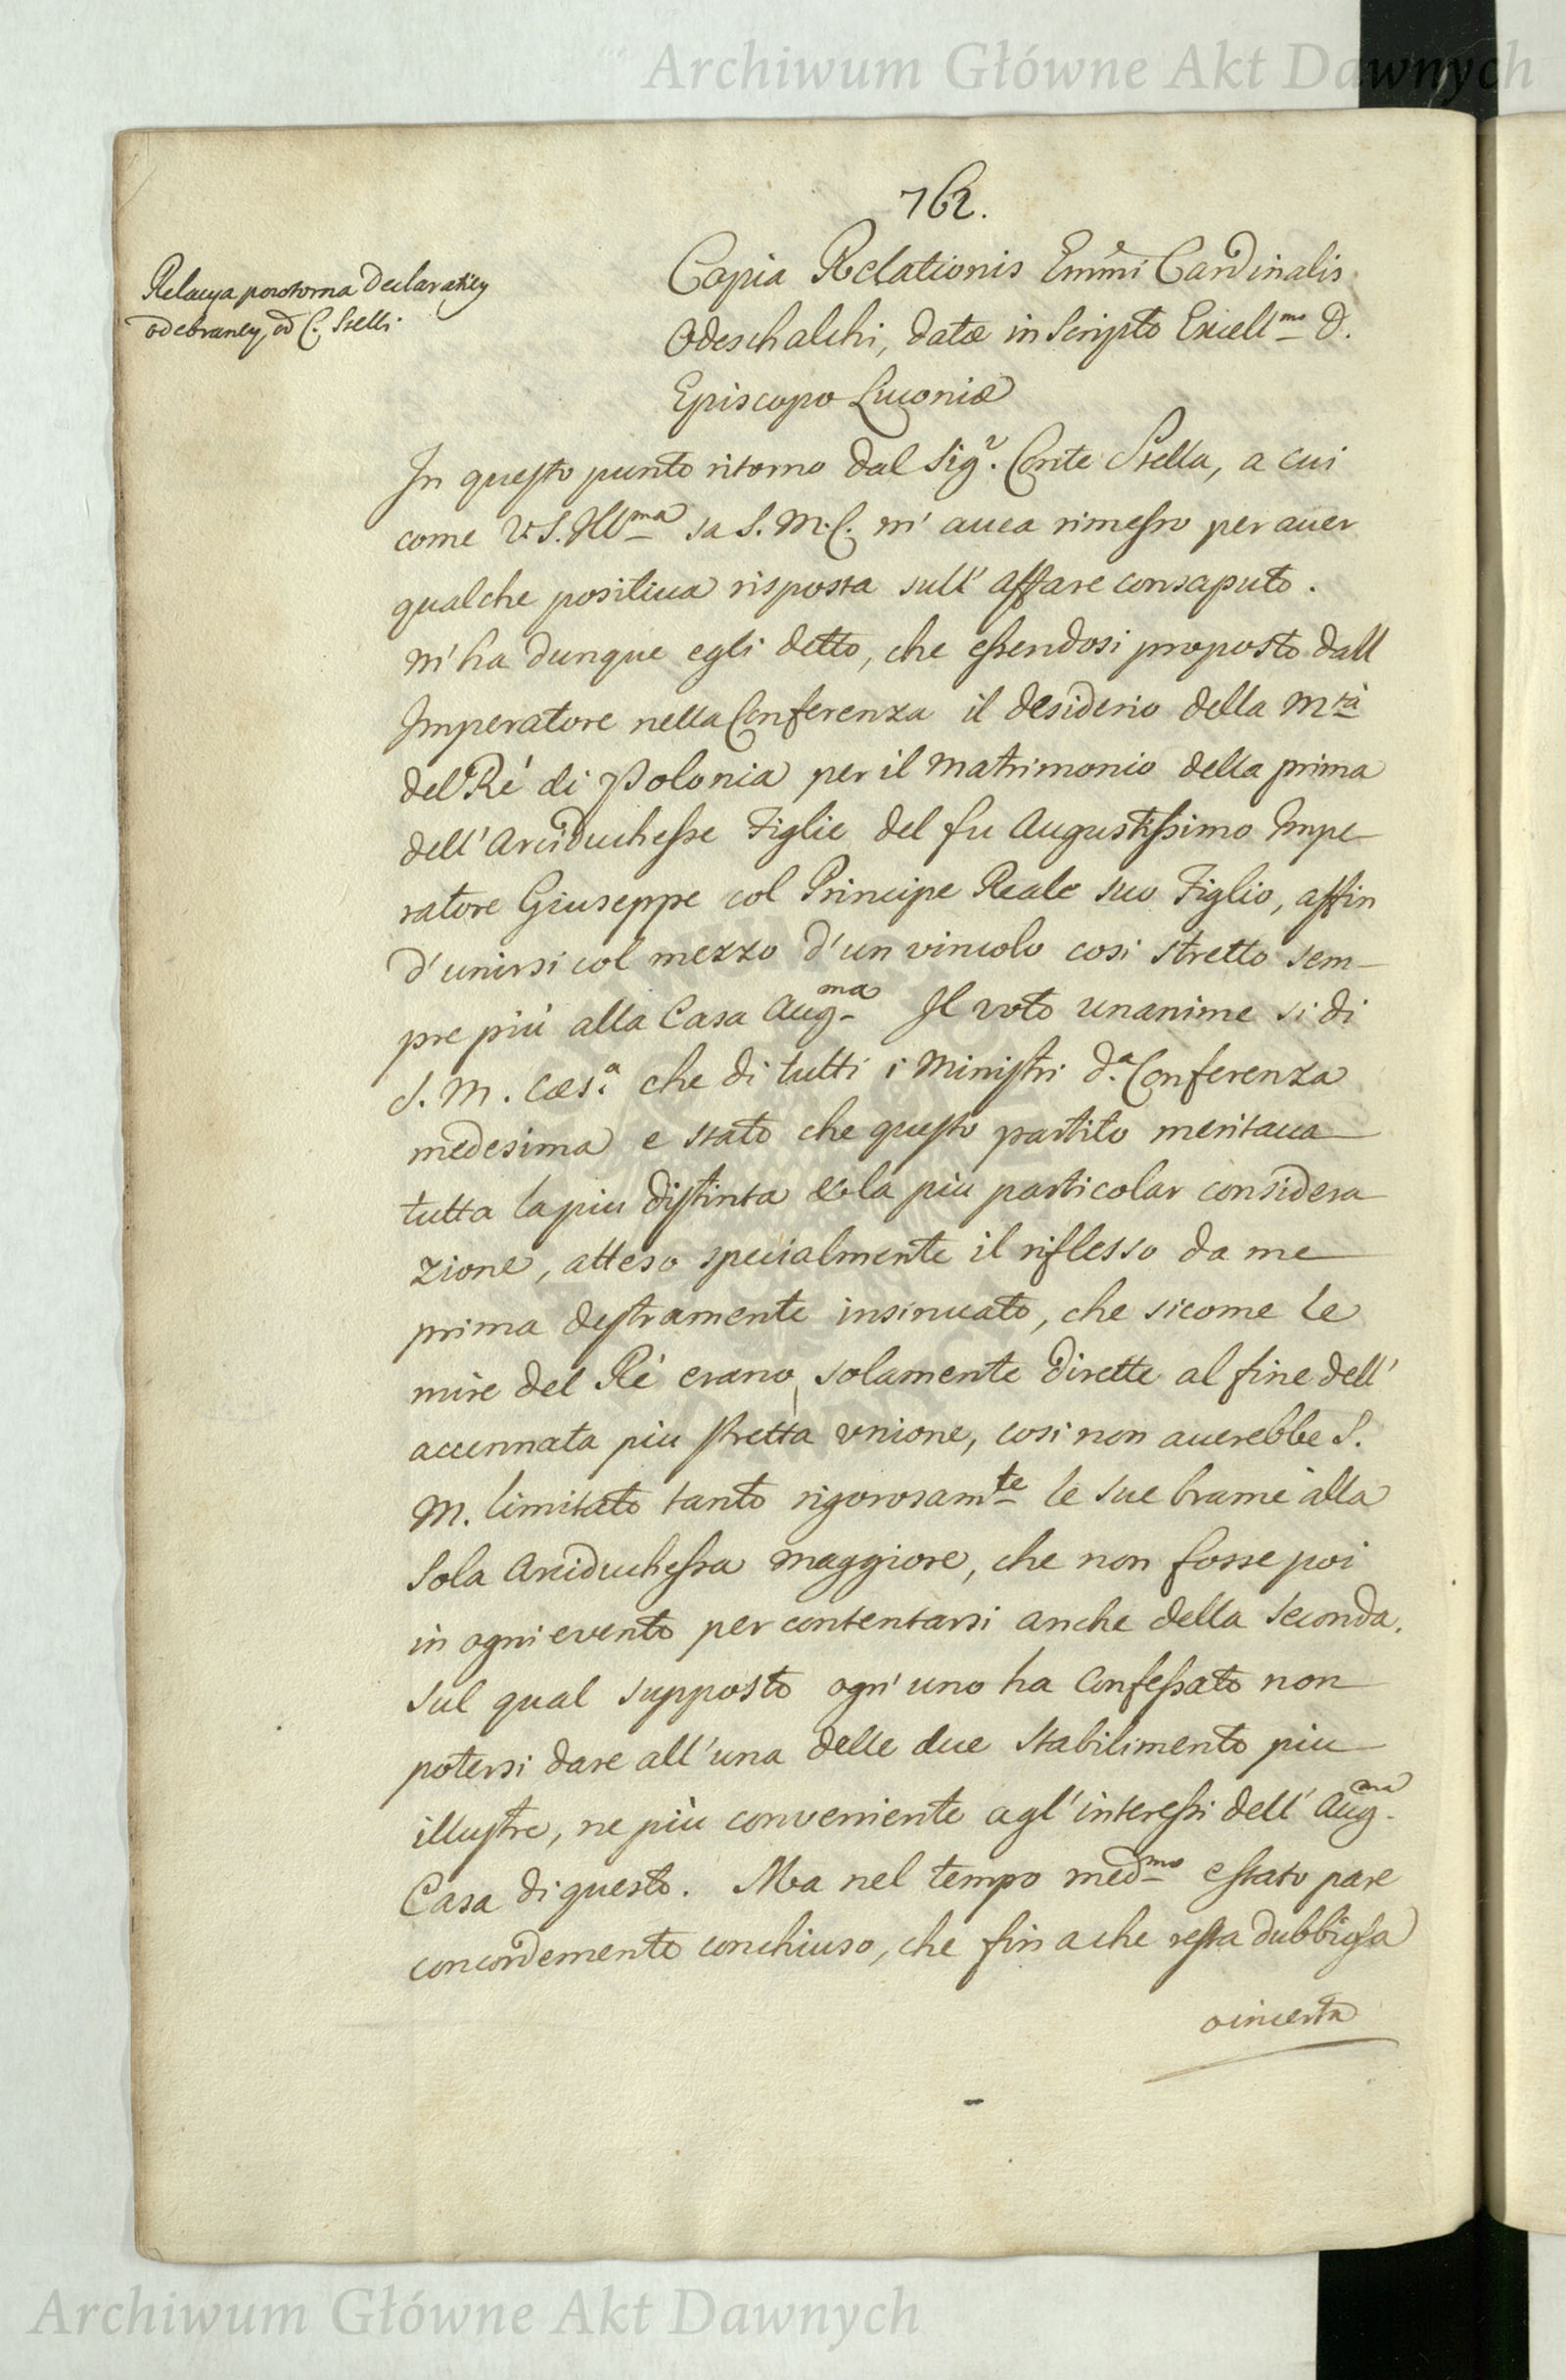 Archiwum Główne Akt Dawnych
762.
Relacya powtorna declaratiey
odebraney, od C. Stelli.
Copia Relationis Emin̄i Cardinalis
Odeschalchi, datæ in Scripto Excell<sup>mo</sup> D.
Episcopo Luconiæ
In questo punto ritorno dal Sig<sup>r</sup>. Conte Stella, a cui
come V. S. Ill<sup>ma</sup> sa S. M. C. m' auea rimesso per auer
qualche positiua risposta sull' affare consaputo.
M' ha dunque egli detto, che essendosi proposto dall
Imperatore nella Conferenza il desiderio della M<sup>tà</sup>
del Ré di Polonia per il Matrimonio della prima
dell' Arciduchesse Figlie del fu Augustissimo Impe-
ratore Giuseppe col Principe Reale suo Figlio, affin
d' unirsi col mezzo d' un vincolo cosi stretto sem-
pre piú alla Casa Aug<sup>ma</sup> Il voto unanime si di
S. M. Cæs.<sup>a</sup> che di tutti i Ministri d.<sup>a</sup> Conferenza
medesima e stato che questo partito meritaua
tutta la piu distinta e la piu particolar considera
zione, atteso specialmente il riflesso da me
prima destramente insinuato, che sicome le
mire del Ré erano solamente dirette al fine dell'
accennata piu stretta vnione, cosi non auerebbe S.
M. limitato tanto rigorosam<sup>te</sup> le sue brame alla
Sola Arciduchessa maggiore, che non fosse poi
in ogni evento per contentarsi anche della Seconda.
Sul qual supposto ogn' uno ha Confessato non
potersi dare all' una delle due Stabilimento piu
illustre, ne più conveniente agl' interessi dell' Aug<sup>ma</sup>.
Casa di questo. Ma nel tempo med<sup>mo</sup> e stato pare
concordemente conchiuso, che fin a che resta dubbiosa
o incerta
Archiwum Główne Akt Dawnych